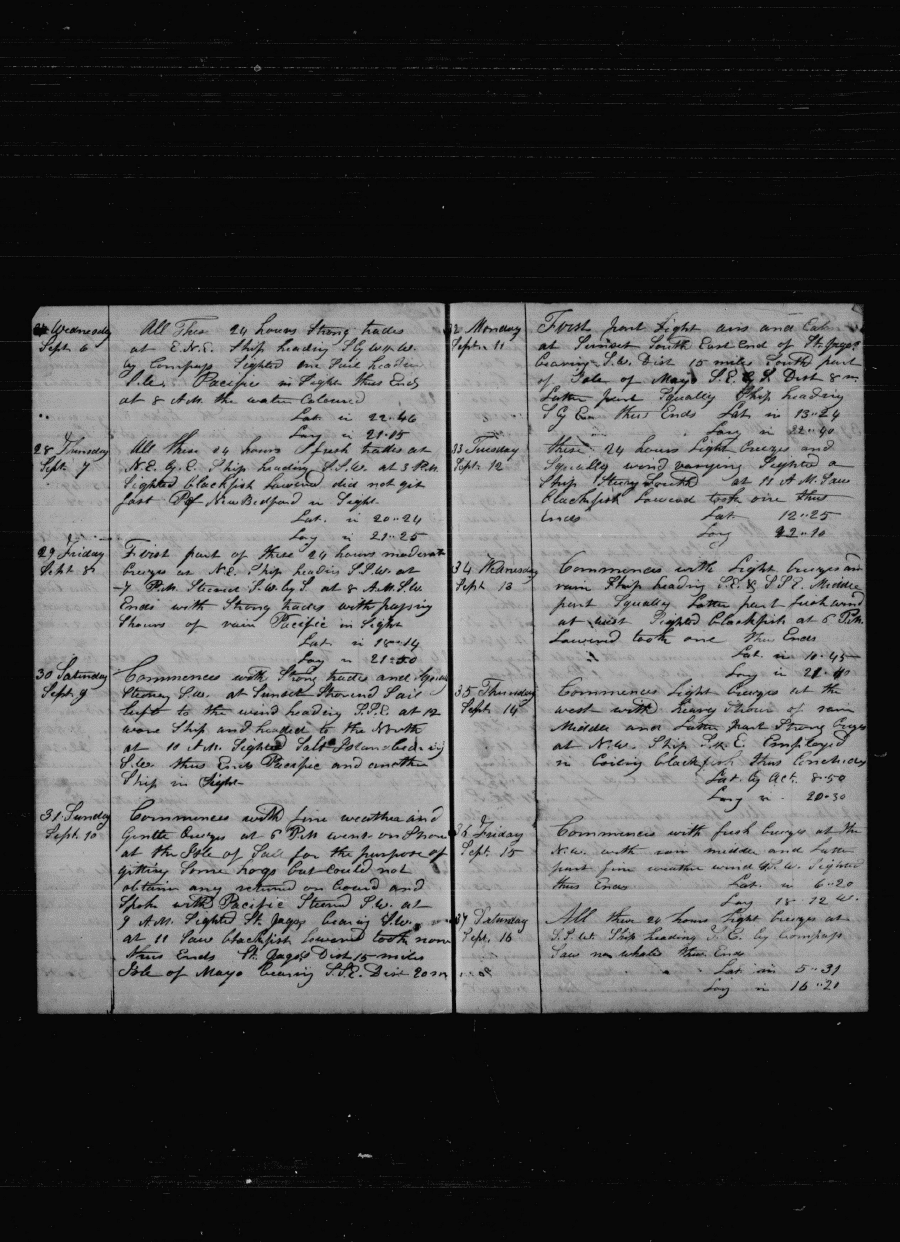 Wednesday All These 24 hours Strong trades
Sept. 6 at E.N.E. Ship heading
by Compass Sighted one Sail heading
S.W. Pacific in Sight thus Ends
at 8 A.M. the water Coloured
Lat in 22-46
Long in 21-15
28 Thursday All these 24 hours fresh trades at
Sept. 7 N.E. by E. Ship heading S.S.W. at 3 P.M.
Sighted blackfish lowered did not git
fast New Bedford in Sight
Lat. in 20-24
Long in 21-25
29 Friday First part of these 24 hours moderate
Sept 8 breezes at N.E. Ship heads S.S.W. at
7 P.M. Steered S.W. by S. at 8 A.M. S.W.
Ends with Strong trades with passing
Showers of rain Pacific in Sight
Lat. in 18-14
Long in 21-50
30 Saturday Commences with Strong trades and
Sept. 9 Steering S.W. at Sunset Shortend Sail
luft to the wind heading S.S.E. at 12
wore Ship and headed to the North
at 10 A.M. Sighted Salt Island bearing
S.W. thus Ends Pacific and another
Ship in Sight
31 Sunday Commences with fine weather and
Sept. 10 Gentle breezes at 5 P.M. went on Shore
at the Isle of Sale for the purpose of
gitting Some hogs but could not
obtain any returned on board and
Spoke with Pacific Steered S.W. at
9 A.M. Sighted St. Jago bearing S.W.
at 11 Saw blackfish lowered took none
thus Ends St. Jago Dist 15 miles
Isle of Mayo bearing S.S.E. Dist 20 m
32 Monday First part Light airs and
Sept. 11 at Sunset South East End of St. Jago
bearing S.W. Dist 15 miles South part
of Isle of Mayo S.E. Dist 8 m
Latter part Squally Ship heading
thus Ends Lat. in 13-24
Long in 22-40
33 Tuesday these 24 hours Light breezes and
Sept. 12 Squally wind varying Sighted a
Ship Steering South at 11 A.M. Saw
blackfish Lowered took one thus
Ends Lat. 12-25
Long 22-10
34 Wednesday Commences with Light breezes and
Sept 13 rain Ship heading S.E. & S.S.E. Middle
part Squally Latter part fresh wind
at west Sighted blackfish at 5 P.M.
Lowered took one thus Ends
Lat. in 10-45
Long in
35 Thursday Commences Light breezes at the
Sept. 14 west with heavy Shower of rain
Middle and Latter part Strong breezes
at N.W. Ship Employed
in boiling blackfish thus Concludes
Lat. by Act. 8-50
Long in 20-30
36 Friday Commences with fresh breezes at the
Sept. 15 N.W. with rain middle and Latter
part fine weather wind S.W. Sighted
thus Ends Lat. in 6-20
Long 18-12 W.
37 Saturday All these 24 hours Light breezes at
Sept. 16 S.S.W. Ship heading S.E. by Compass
Saw no whales thus Ends
Lat. in 5-31
Long in 16-20